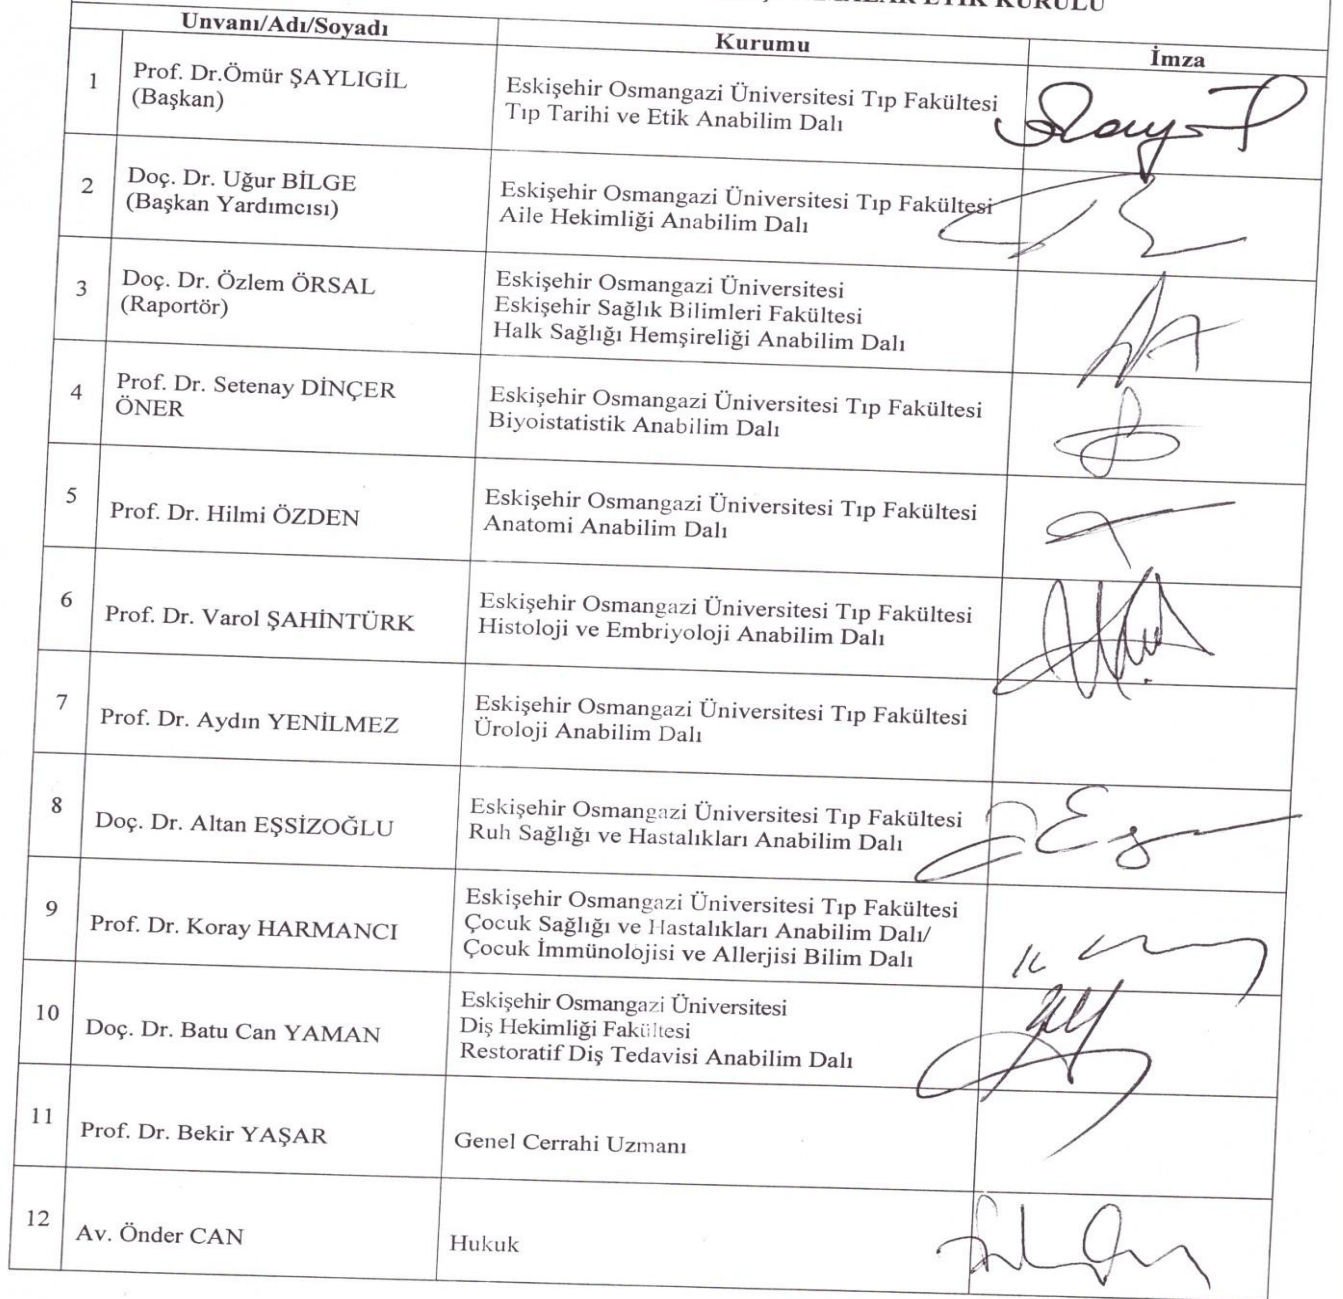 ETİK KURULU
Unvanı/Adı/Soyadı
Kurumu
İmza
1
Prof. Dr.Ömür ŞAYLIGİL
(Başkan)
Eskişehir Osmangazi Üniversitesi Tıp Fakültesi
Tıp Tarihi ve Etik Anabilim Dalı
2
Doç. Dr. Uğur BİLGE
(Başkan Yardımcısı)
Eskişehir Osmangazi Üniversitesi Tıp Fakültesi
Aile Hekimliği Anabilim Dalı
3
Doç. Dr. Özlem ÖRSAL
(Raportör)
Eskişehir Osmangazi Üniversitesi
Eskişehir Sağlık Bilimleri Fakültesi
Halk Sağlığı Hemşireliği Anabilim Dalı
4
Prof. Dr. Setenay DİNÇER
ÖNER
Eskişehir Osmangazi Üniversitesi Tıp Fakültesi
Biyoistatistik Anabilim Dalı
5
Prof. Dr. Hilmi ÖZDEN
Eskişehir Osmangazi Üniversitesi Tıp Fakültesi
Anatomi Anabilim Dalı
6
Prof. Dr. Varol ŞAHİNTÜRK
Eskişehir Osmangazi Üniversitesi Tıp Fakültesi
Histoloji ve Embriyoloji Anabilim Dalı
7
Prof. Dr. Aydın YENİLMEZ
Eskişehir Osmangazi Üniversitesi Tıp Fakültesi
Üroloji Anabilim Dalı
8
Doç. Dr. Altan EŞSİZOĞLU
Eskişehir Osmangazi Üniversitesi Tıp Fakültesi
Ruh Sağlığı ve Hastalıkları Anabilim Dalı
9
Prof. Dr. Koray HARMANCI
Eskişehir Osmangazi Üniversitesi Tıp Fakültesi
Çocuk Sağlığı ve Hastalıkları Anabilim Dalı/
Çocuk İmmünolojisi ve Allerjisi Bilim Dalı
10
Doç. Dr. Batu Can YAMAN
Eskişehir Osmangazi Üniversitesi
Diş Hekimliği Fakültesi
Restoratif Diş Tedavisi Anabilim Dalı
11
Prof. Dr. Bekir YAŞAR
Genel Cerrahi Uzmanı
12
Av. Önder CAN
Hukuk